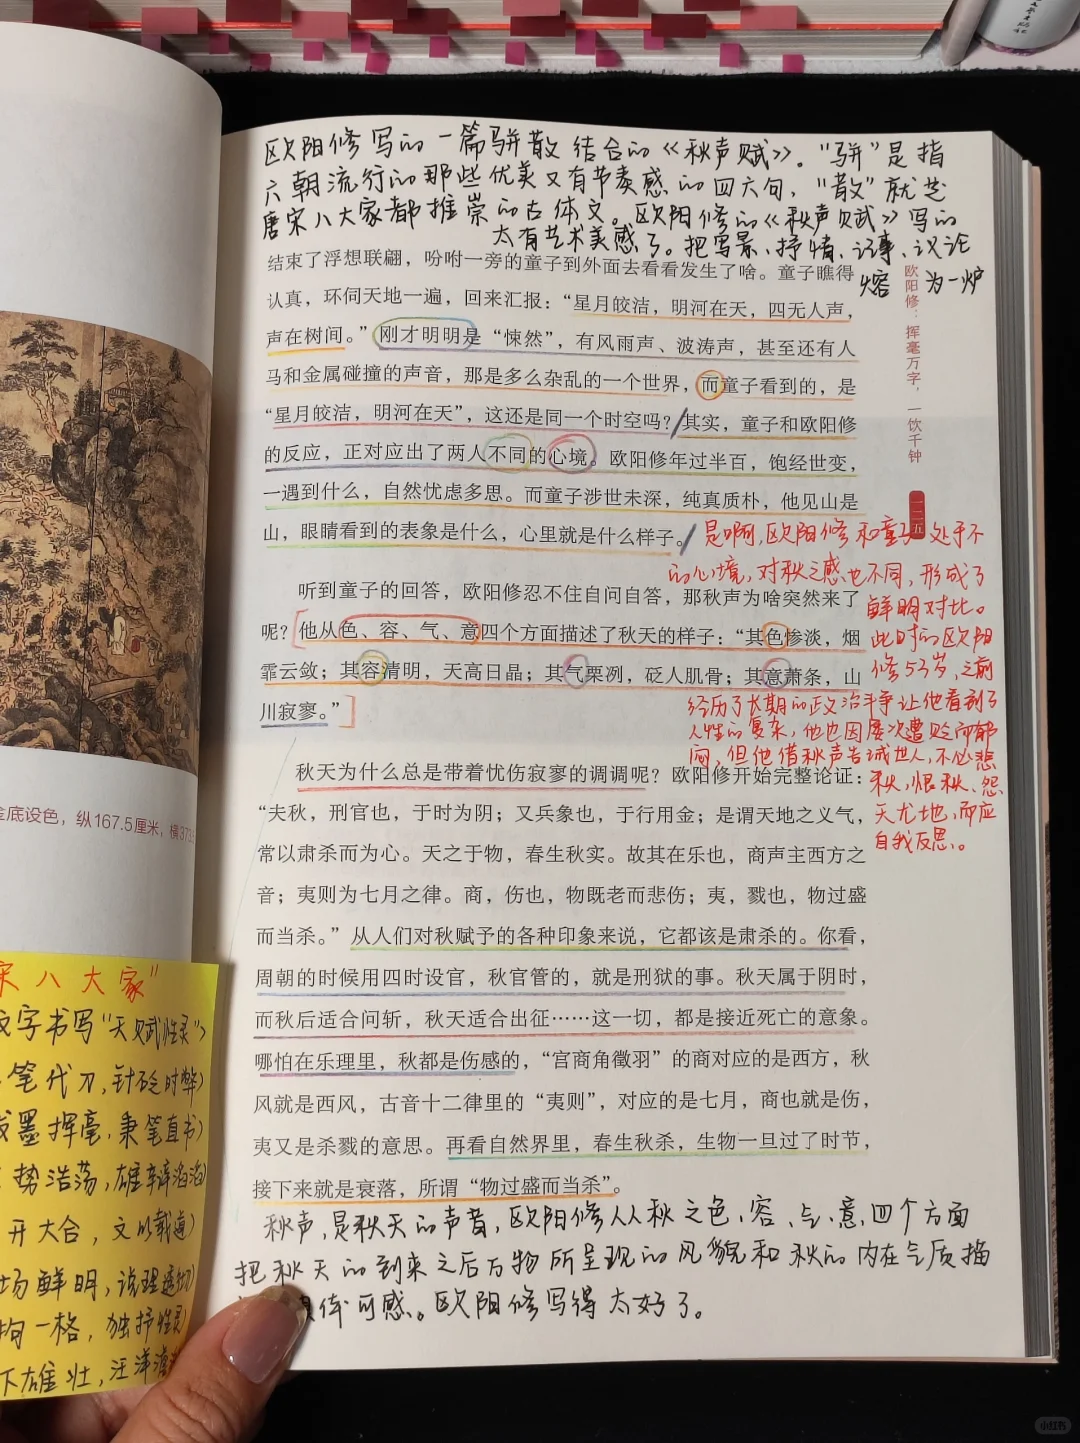 欧阳修写的一篇骈散结合的《秋声赋》。“骈”是指
六朝流行的那些优美又有节奏感的四六句，“散”就是
唐宋八大家都推崇的古体文。欧阳修的《秋声赋》写的
太有艺术美感了。把写景、抒情、记事、议论
熔为一炉
结束了浮想联翩，吩咐一旁的童子到外面去看看发生了啥。童子瞧得
认真，环伺天地一遍，回来汇报：“星月皎洁，明河在天，四无人声，
声在树间。”刚才明明是“悚然”，有风雨声、波涛声，甚至还有人
马和金属碰撞的声音，那是多么杂乱的一个世界，而童子看到的，是
“星月皎洁，明河在天”，这还是同一个时空吗？其实，童子和欧阳修
的反应，正对应出了两人不同的心境。欧阳修年过半百，饱经世变，
一遇到什么，自然忧虑多思。而童子涉世未深，纯真质朴，他见山是
山，眼睛看到的表象是什么，心里就是什么样子。
听到童子的回答，欧阳修忍不住自问自答，那秋声为啥突然来了
呢？他从色、容、气、意四个方面描述了秋天的样子：“其色惨淡，烟
霏云敛；其容清明，天高日晶；其气栗冽，砭人肌骨；其意萧条，山
川寂寥。”
秋天为什么总是带着忧伤寂寥的调调呢？欧阳修开始完整论证：
“夫秋，刑官也，于时为阴；又兵象也，于行用金；是谓天地之义气，
常以肃杀而为心。天之于物，春生秋实。故其在乐也，商声主西方之
音；夷则为七月之律。商，伤也，物既老而悲伤；夷，戮也，物过盛
而当杀。”从人们对秋赋予的各种印象来说，它都该是肃杀的。你看，
周朝的时候用四时设官，秋官管的，就是刑狱的事。秋天属于阴时，
而秋后适合问斩，秋天适合出征……这一切，都是接近死亡的意象。
哪怕在乐理里，秋都是伤感的，“宫商角徵羽”的商对应的是西方，秋
风就是西风，古音十二律里的“夷则”，对应的是七月，商也就是伤，
夷又是杀戮的意思。再看自然界里，春生秋杀，生物一旦过了时节，
接下来就是衰落，所谓“物过盛而当杀”。
秋声，是秋天的声音，欧阳修从秋之色、容、气、意，四个方面
把秋天的到来之后万物所呈现的风貌和秋的内在气质描
体可感。欧阳修写得太好了。
欧阳修：挥毫万字，一饮千钟
一二五
是啊，欧阳修和童子处于不
的心境，对秋之感也不同，形成了
鲜明对比。
此时的欧阳
修53岁，之前
经历了长期的政治斗争让他看到了
人性的复杂，他也因屡次遭贬而郁
闷，但他借秋声告诫世人，不必悲
秋，恨秋、怨
天尤地，而应
自我反思。
金底设色，纵167.5厘米，横373
宋八大家”
文字书写“天赋性灵”
笔代刀，针砭时弊）
墨挥毫，秉笔直书）
势浩荡，雄辩滔滔）
开大合，文以载道）
场鲜明，说理透彻）
拘一格，独抒性灵）
下雄壮，汪洋
小红书